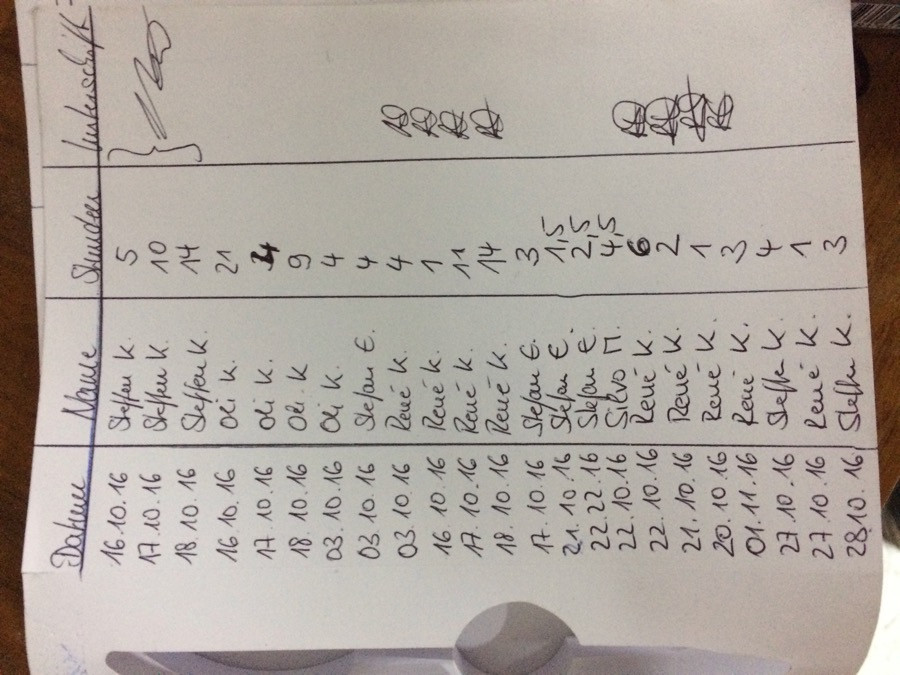 Datum Name Stunden Unterschrift
16.10.16 Steffen K. 5
17.10.16 Steffen K. 10
18.10.16 Steffen K. 14
16.10.16 Oli K. 21
17.10.16 Oli K.
18.10.16 Oli K 9
03.10.16 Oli K. 4
03.10.16 Stefan E. 4
03.10.16 René K. 4
16.10.16 René K. 1
17.10.16 René K. 11
18.10.16 René K. 14
17.10.16 Stefan E. 3
21.10.16 Stefan E. 1,5
22.22.16 Stefan E. 2,5
22.10.16 Silvo M. 4,5
22.10.16 René K. 6
21.10.16 René K. 2
20.10.16 René K. 1
01.11.16 René K. 3
27.10.16 Steffen K. 4
27.10.16 René K. 1
28.10.16 Steffen K. 3